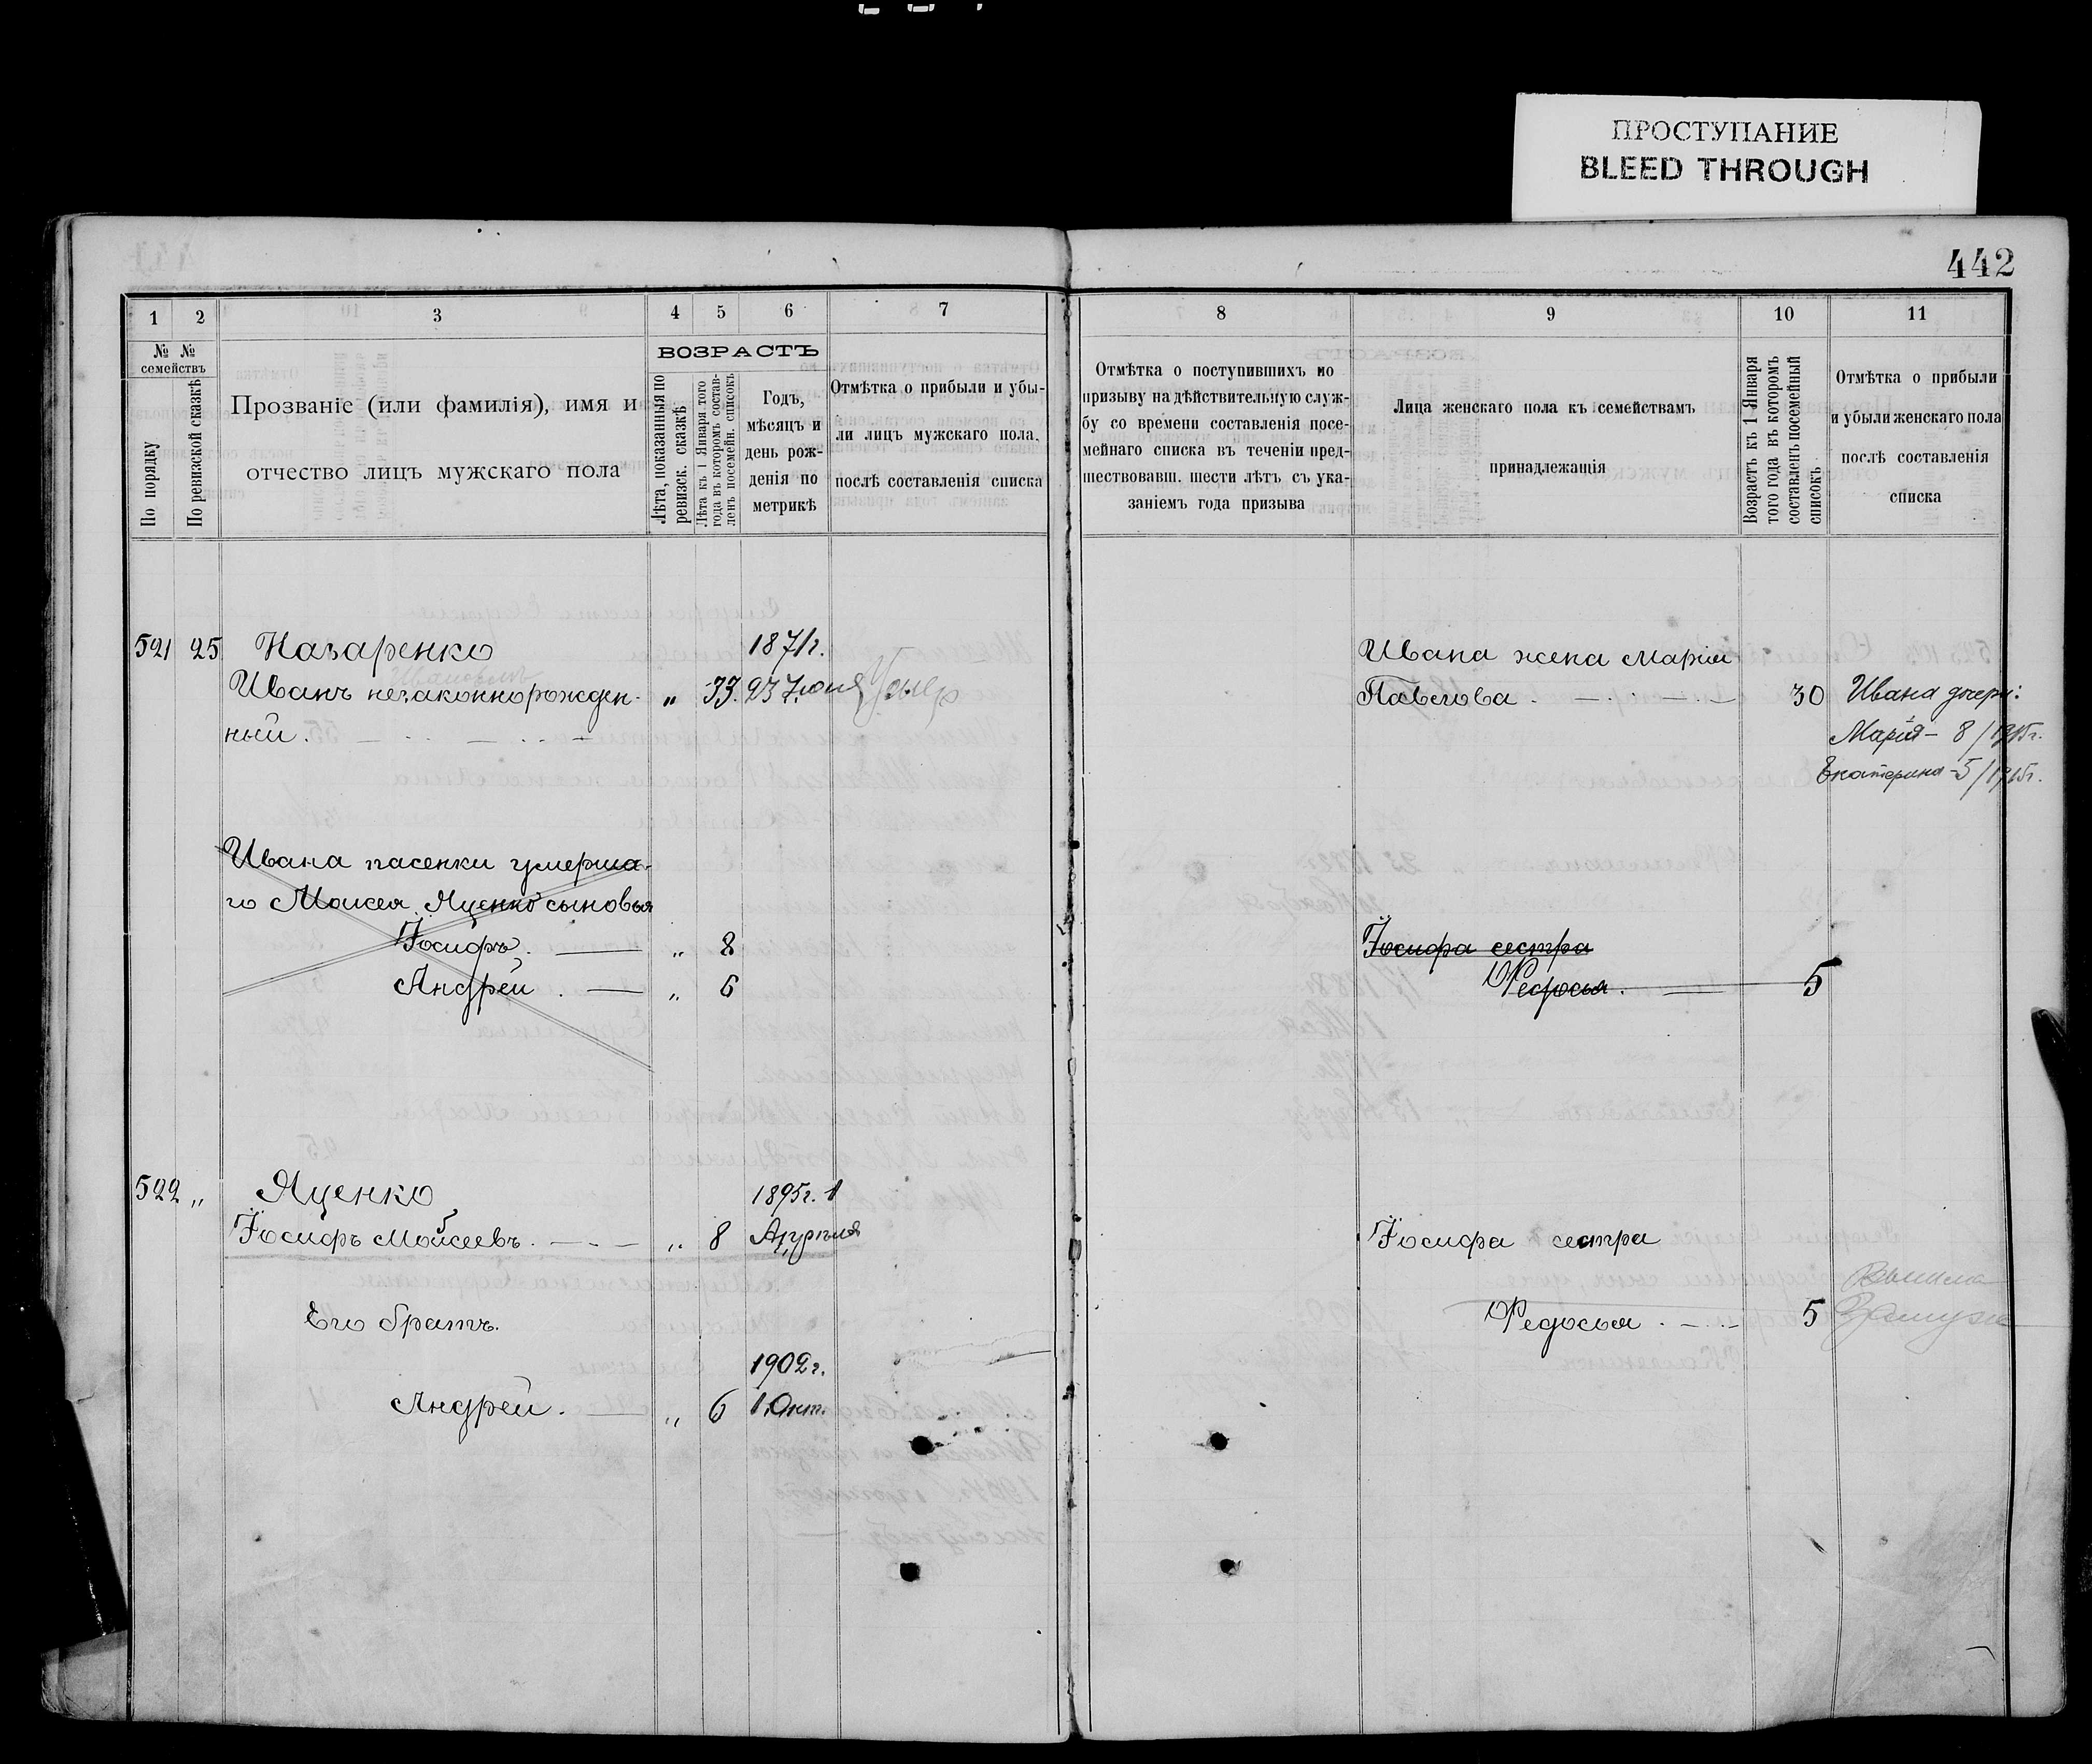 ПРОСТУПАНИЕ
BLEED THROUGH
442
1 2 3 4 5 6 7
№ № семействъ
По порядку
По ревизской сказкѣ
Прозваніе (или фамилія), имя и
отчество лицъ мужскаго пола
ВОЗРАСТЪ
Лѣта, показанныя по
ревизск. сказкѣ
Лѣта къ 1 Января того
года въ которомъ состав-
ленъ посемейн. списокъ
Годъ,
мѣсяцъ и
день рож-
денія по
метрикѣ
Отмѣтка о прибыли и убы-
ли лицъ мужскаго пола,
послѣ составленія списка
8 9 10 11
Отмѣтка о поступившихъ по
призыву на дѣйствительную служ-
бу со времени составленія посе-
мейнаго списка въ теченіи пред-
шествовавш. шести лѣтъ съ ука-
заніемъ года призыва
Лица женскаго пола къ семействамъ
принадлежащія
Возрастъ къ 1 Января
того года въ которомъ
составленъ посемейный
списокъ
Отмѣтка о прибыли
и убыли женскаго пола
послѣ составленія
списка
521 25 Назаренко 1871г.
Ивановъ
Иванъ незаконнорожден- „ 33. 23 Іюня Умер
ный.
Ивана жена Марія
Павлова. 30
Ивана дочери:
Марія - 8/1915г.
Екатерина - 5/1915г.
Ивана пасенки умерша-
го Моисея Яценко сыновья
Іосифъ. „ 8
Андрей. „ 6
Іосифа сестра
Федосья. 5
522 „ Яценко 1895г. 1
Іосифъ Мойсеевъ. „ 8 Апрѣля
Его братъ.
1902г.
Андрей. „ 6 1 Окт.
Іосифа сестра
Федосья. 5
Вышла
Замуж